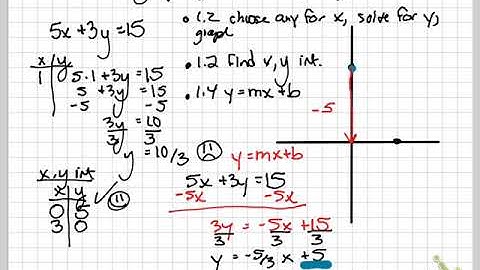 5x+3y=15
• 1.2 choose any for x, solve for y,
graph
• 1.2 Find x,y int.
• 1.4 y=mx+b
x y
1
5·1+3y=15
5 +3y =15
-5 -5
3y = 10
3 3
y = 10/3
x,y int
x y
0
3 0
y=mx+b
5x +3y =15
-5x -5x
3y = -5x +15
3 3 3
y = -5/3 x +5
-5